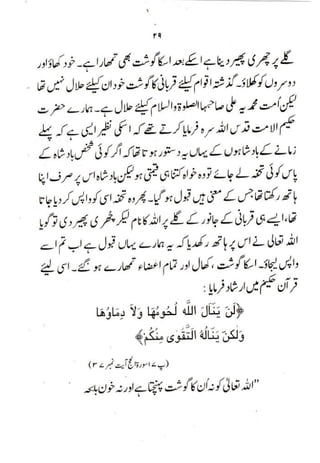 ۲۹
گلے پر چھری پھیر دینا ہے اسکے بعد اسکا گوشت بھی تمھارا ہے۔ خود کھاؤ اور
دوسروں کو کھلاؤ۔ گذشتہ اقوام کیلئے قربانی کا گوشت خود ان کیلئے حلال نہیں تھا
لیکن اُمت محمدیہ علی صاحبہا الصلوۃ والسلام کیلئے حلال ہے۔ ہمارے حضرت
حکیم الامت قدس اللہ سرہ فرمایا کرتے تھے کہ اسکی نظیر ایسی ہے کہ پہلے
زمانے کے بادشاہوں کے یہاں یہ دستور ہوتا تھا کہ اگر کوئی شخص بادشاہ کے
پاس کوئی تحفہ لے جائے تو وہ خواہ کتنا ہی قیمتی ہو لیکن بادشاہ اس پر صرف اپنا
ہاتھ رکھتا تھا جس کے معنی ہیں قبول ہو گیا۔ پھر وہ تحفہ اسی کو واپس کر دیا جاتا
تھا، ایسے ہی قربانی کے جانور کے گلے پر اللہ کا نام لیکر چھری پھیر دی تو گویا
اللہ تعالیٰ نے اس پر ہاتھ رکھ دیا کہ یہ ہمارے یہاں قبول ہے اب تم اسے
واپس لیجاؤ۔ اسکا گوشت، کھال اور تمام اعضاء تمھارے ہو گئے۔ اسی لیئے
قرآن حکیم میں ارشاد فرمایا:
﴿لَن يَنَالَ اللَّهَ لُحُومُهَا وَلَا دِمَاؤُهَا
وَلَكِن يَنَالُهُ التَّقْوَى مِنكُمْ﴾
(پ ۱۷ سورۃ الحج آیت نمبر ۳۷)
"اللہ تعالیٰ کو نہ اُن کا گوشت پہنچتا ہے اور نہ خون بلکہ